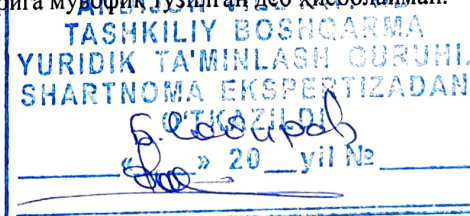 рига мувофиқ тузилган деб ҳисоблайман.
TASHKILIY BOSHQARMA
YURIDIK TA'MINLASH GURUHI.
SHARTNOMA EKSPERTIZADAN
O'TKAZILDI
« » 20__yil №